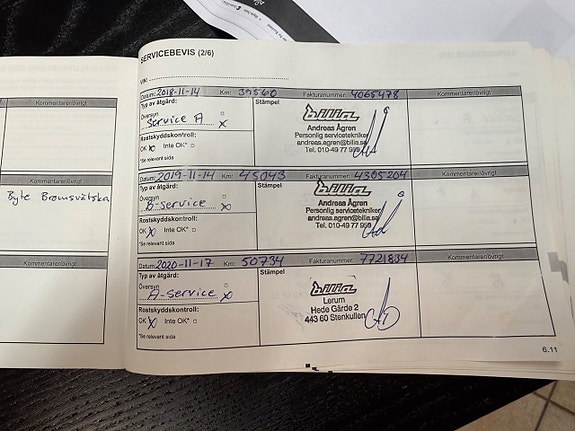 Kommentarer/övrigt
Kommentarer/övrigt
Byte Bromsvätska
Kommentarer/övrigt
SERVICEBEVIS (2/6)
VIN:
Datum: 2018-11-14 Km: 39560 Fakturanummer: 4065478 Kommentarer/övrigt
Typ av åtgärd: Stämpel
Översyn
Service A X
Rostskyddskontroll:
OK X Inte OK*
*Se relevant sida
bilia
Andreas Ågren
Personlig servicetekniker
andreas.agren@bilia.se
Tel. 010-49 77 959
Datum: 2019-11-14 Km: 45043 Fakturanummer: 4305204 Kommentarer/övrigt
Typ av åtgärd: Stämpel
Översyn
B-service X
Rostskyddskontroll:
OK X Inte OK*
*Se relevant sida
bilia
Andreas Ågren
Personlig servicetekniker
andreas.agren@bilia.se
Tel. 010-49 77 959
Datum: 2020-11-17 Km: 50734 Fakturanummer: 7721834 Kommentarer/övrigt
Typ av åtgärd: Stämpel
Översyn
A-service X
Rostskyddskontroll:
OK X Inte OK*
*Se relevant sida
bilia
Lerum
Hede Gärde 2
443 60 Stenkullen
6.11